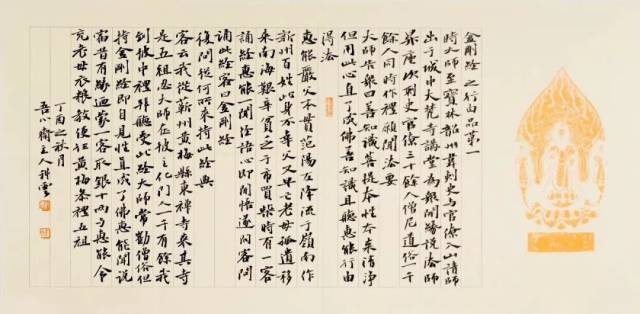 金剛經之行由品第一
時大師至寶林韶州韋刺史與官僚入山請師
出于城中大梵寺講堂為眾開緣說法師
昇座次刺史官僚三十餘人僧尼道俗一千
餘人同時作禮願聞法要
大師告眾曰善知識菩提本性本來清淨
但用此心直了成佛善知識且聽惠能行由
得法
惠能嚴父本貫范陽左降流于嶺南作
新州百姓此身不幸父又早亡老母孤遺移
來南海艱辛貧乏于市買柴時有一客
誦經惠能一聞經語心即開悟遂問客問
誦此經客曰金剛經
復問從何所來持此經典
客云我從蘄州黃梅縣東禪寺來其寺
是五祖忍大師在彼主化門人一千有餘我
到彼中禮拜聽受此經大師常勸僧俗但
持金剛經即自見性直了成佛惠能聞說
宿昔有緣廼蒙一客取銀十兩与惠能令
充老母衣粮教便往黃梅參禮五祖
丁酉之秋月
吾心齋主人